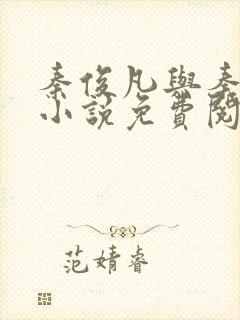 秦俊凡與秦
小說免費閱
范婧睿